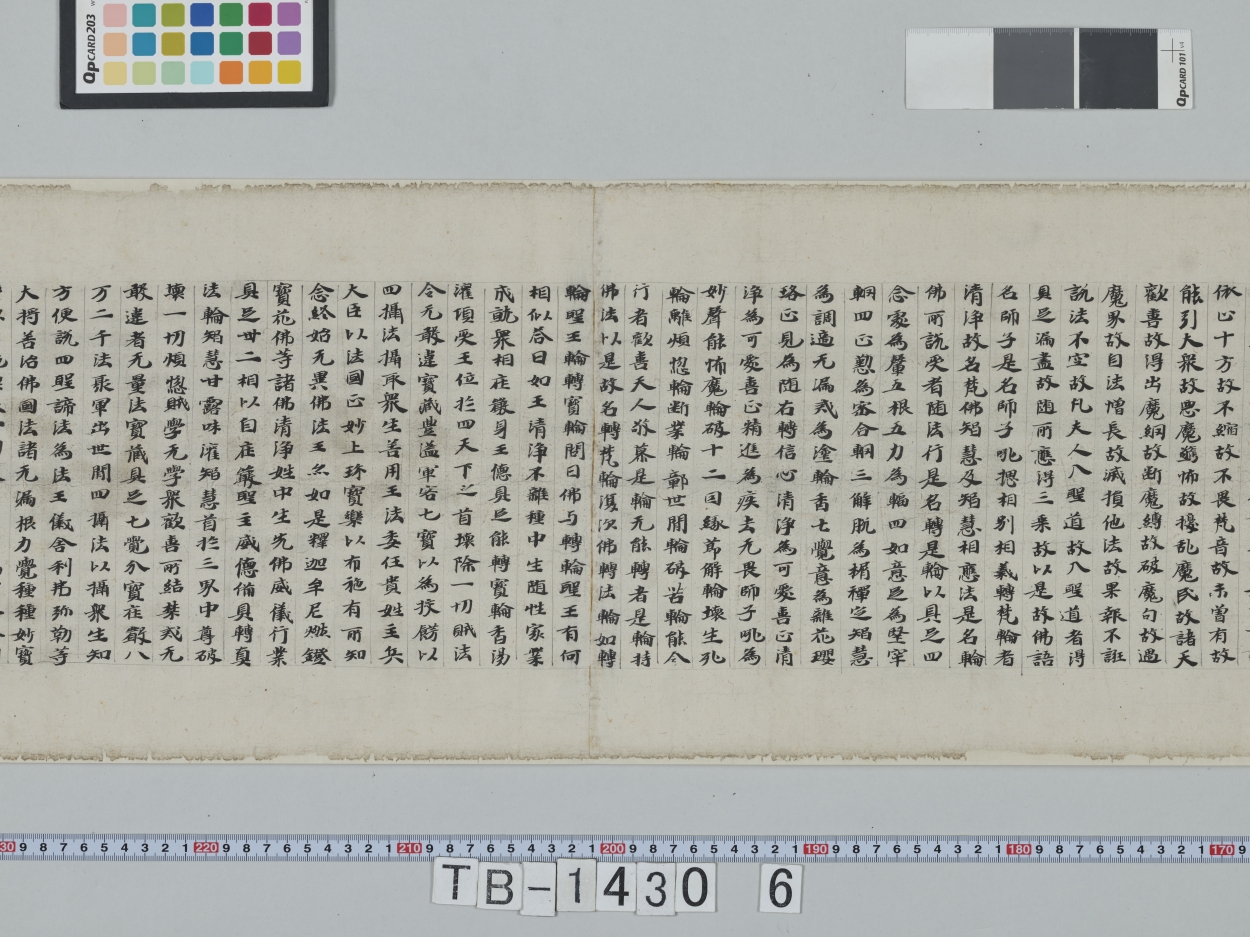 依止十方故不縮故不畏梵音故未曾有故
能引大衆故惡魔愁怖故擾乱魔民故諸天
歡喜故得出魔網故断魔縛故破魔句故過
魔界故自法增長故減損他法故果報不誑
說法不空故凡夫人入聖道故入聖道者得
具足漏盡故随所應得三乘故以是故佛語
名師子是名師子吼捴相別相義轉梵輪者
清淨故名梵佛知慧及知慧相應法是名輪
佛所說受者随法行是名轉是輪以具足四
念處為轂五根五力為輻四如意足為堅牢
輞四正懃為密合輞三解脫為楔禪定知慧
為調適无漏戒為塗輪香七覺意為雜花瓔
珞正見為随右轉信心清淨為可愛喜正清
淨為可愛喜正精進為疾去无畏師子吼為
妙聲能怖魔輪破十二因緣莭解輪壞生死
輪離煩惱輪断業輪鄣世間輪破苦輪能令
行者歡喜天人敬慕是輪无能轉者是輪持
佛法以是故名轉梵輪復次佛轉法輪如轉
輪聖王輪轉寶輪問曰佛与轉輪聖王有何
相似荅曰如王清淨不離種中生随性家業
成就衆相㽵嚴身王德具足能轉寶輪香湯
灌頂受王位於四天下之首壞除一切賊法
令无敢違寶藏豐溢軍容七寶以為挍餝以
四攝法攝取衆生善用王法委任貴姓主兵
大臣以法國正妙上珎寶樂以布施有所知
念終始无異佛法王亦如是釋迦牟尼燃鐙
寶花佛等諸佛清淨姓中生先佛威儀行業
具足卅二相以自㽵嚴聖主威德備具轉真
法輪知慧甘露味灌知慧首於三界中尊破
壞一切煩惱賊學无學衆歡喜所結禁戒无
敢違者无量法寶藏具足七覺分寶㽵嚴八
万二千法聚軍出世間四攝法以攝衆生知
方便說四聖諦法為法王儀舍利弗弥勒等
大將善治佛國法諸无漏根力覺種種妙寶
QpCARD 203
QpCARD 101 v4
TB-1430 6